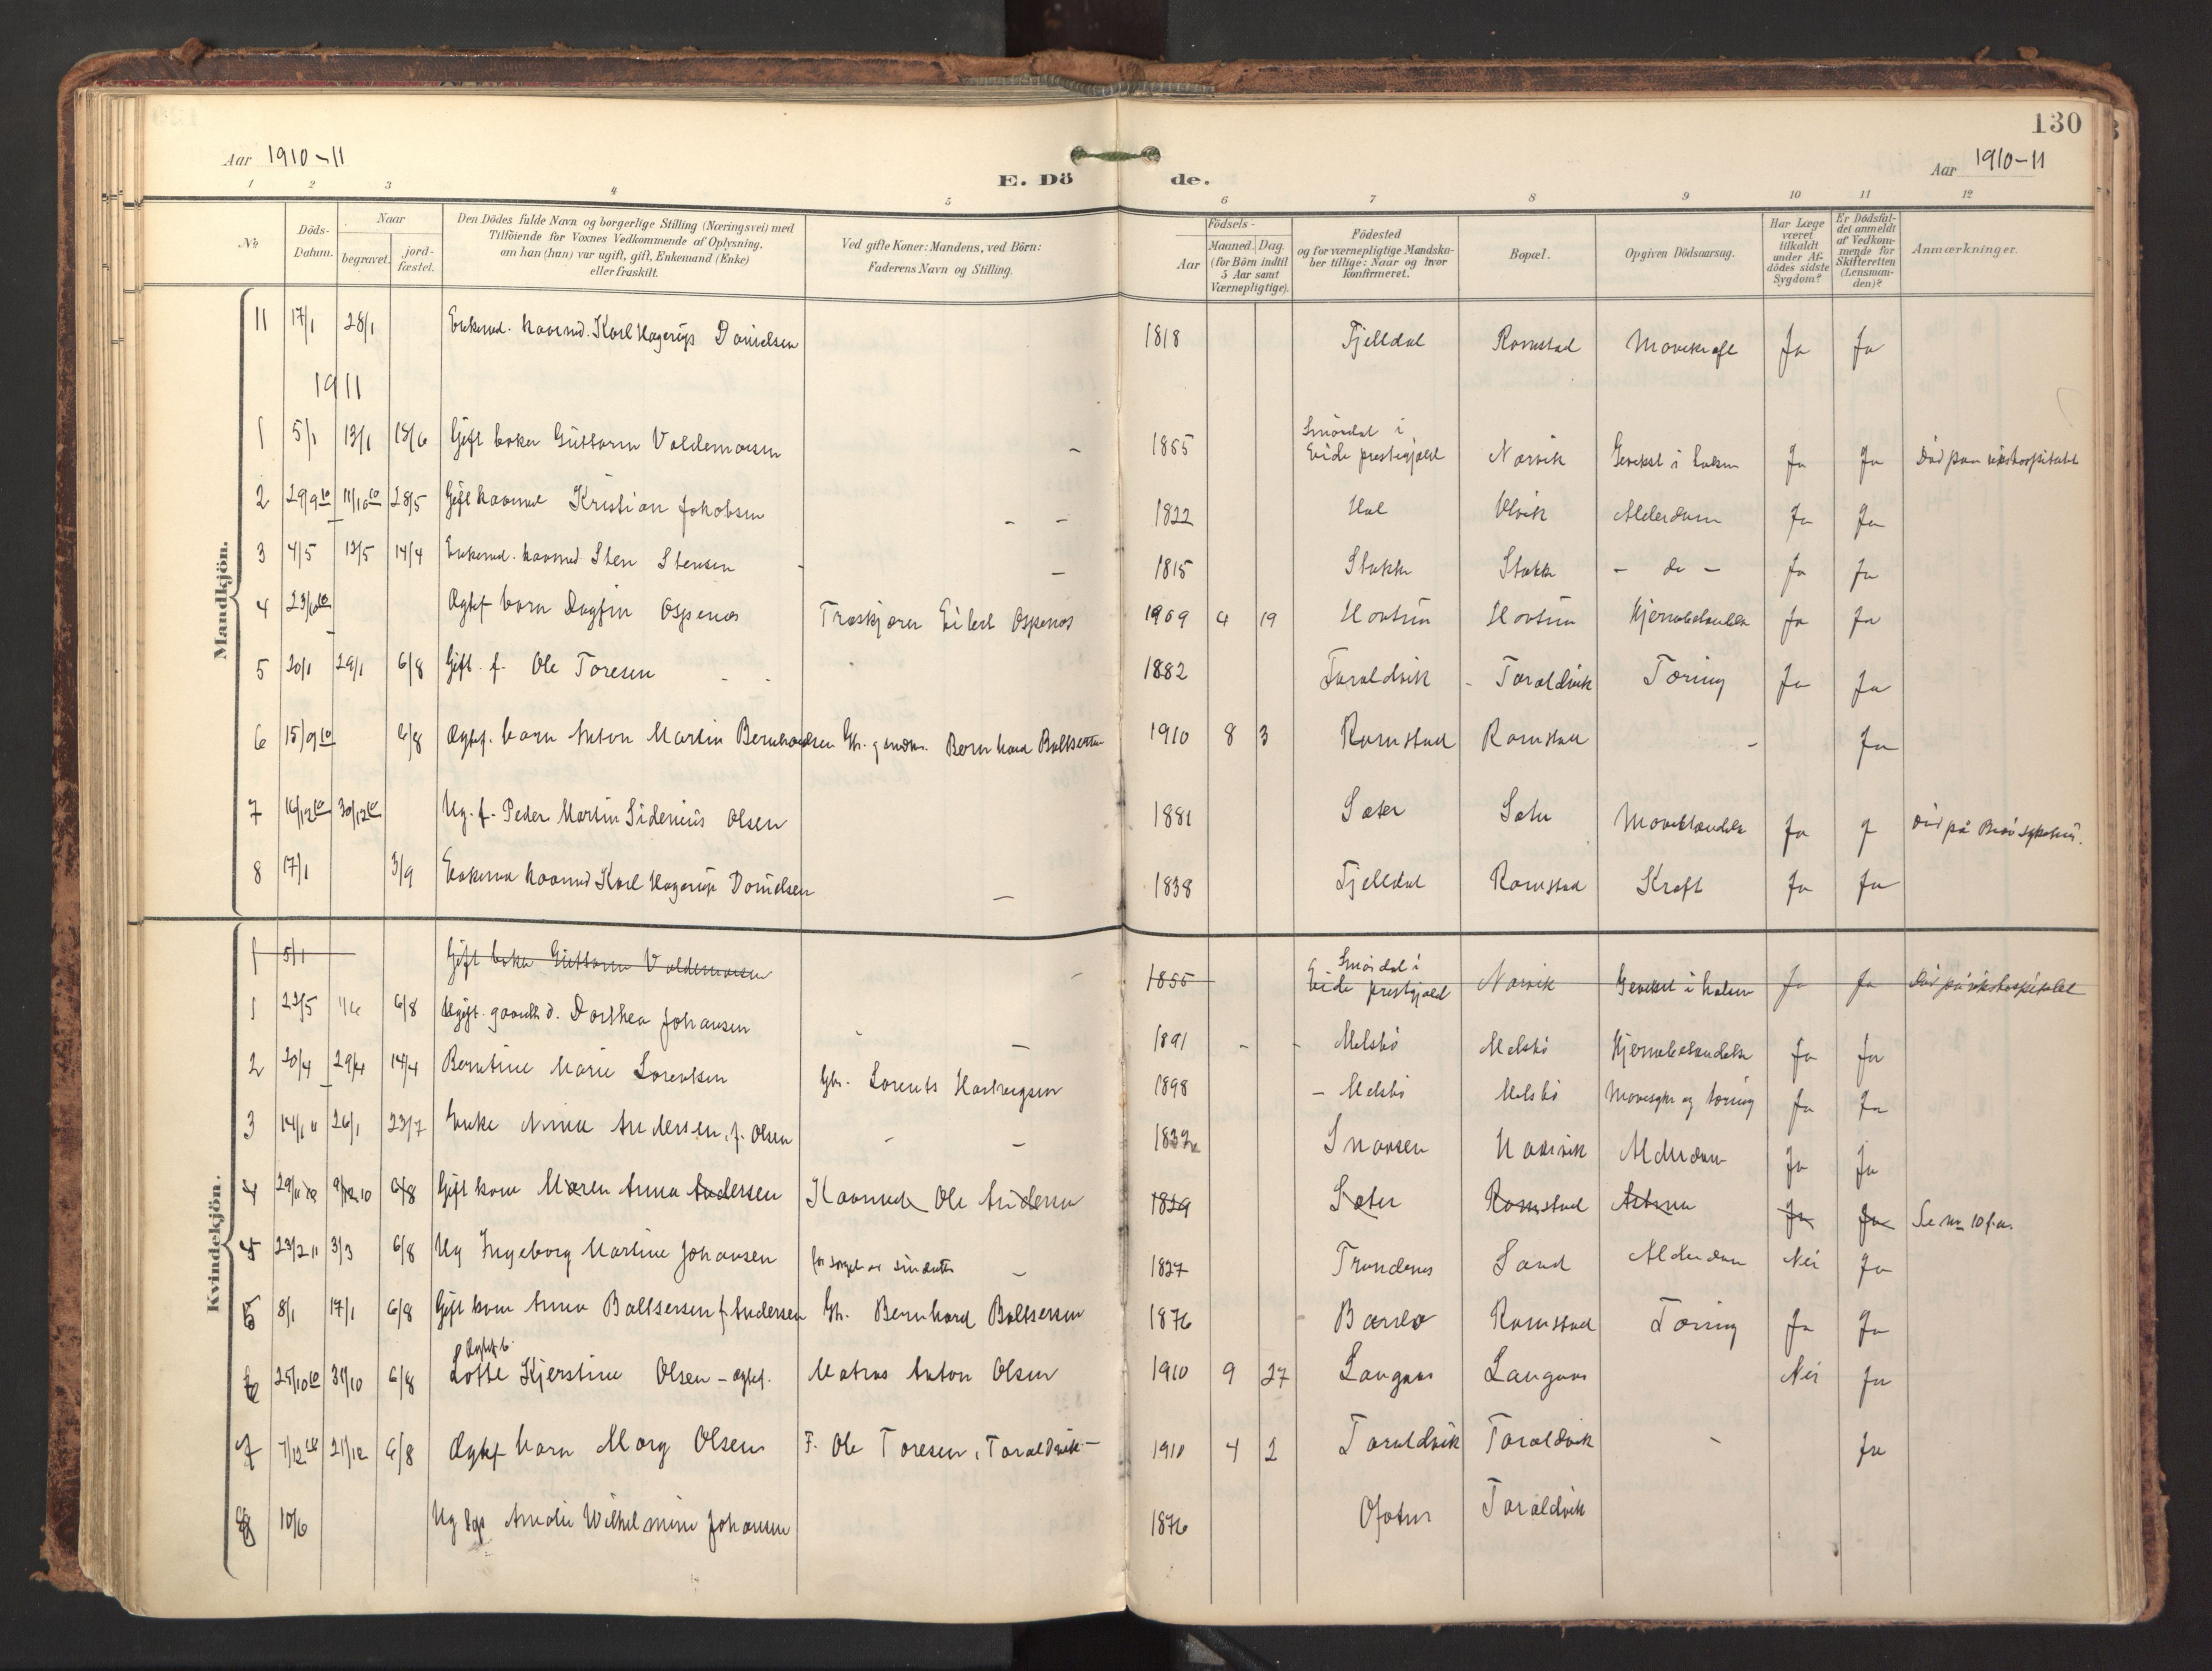 130
Aar 1910-11
Aar 1910-11
E. Dö de.
1 2 3 4 5 6 7 8 9 10 11 12
No
Döds-Datum.
Naar
begravet.
jord-fæstet.
Den Dödes fulde Navn og borgerlige Stilling (Næringsvei) med
Tilföiende for Voxnes Vedkommende af Oplysning.
om han (hun) var ugift, gift, Enkemand (Enke)
eller fraskilt.
Ved gifte Koner: Mandens, ved Börn:
Faderens Navn og Stilling.
Födsels-
Aar
Maaned. Dag.
(for Börn indtil
5 Aar samt
Værnepligtige).
Födested
og for værnepligtige Mandska-
ber tillige: Naar og hvor
konfirmeret.
Bopæl.
Opgiven Dödsaarsag.
Har Læge
været
tilkaldt
under Af-
dödes sidste
Sygdom?
Er Dödsfal-
det anmeldt
af Vedkom-
mende for
Skifteretten
(Lensman-
den)?
Anmærkninger.
Mandkjön.
11 17/1 28/1 Enkemd. Karl Hagerup Danielsen 1818 Fjelldal Ramstad Mavekræft Ja Ja
1911
1 5/1 13/1 18/6 Gift Guttorm Valdemarsen - 1855 Eide prestegjæld Narvik Ja Ja
2 29/9 10 11/10 10 28/5 Gift Kristian Jakobsen - - 1822 Ja Ja
3 4/5 13/5 14/4 Enkemd. Sten Stensen - 1815 Stokke Stokke - do - Ja Ja
4 Ægtef barn Dagfin Ospenes Eilert Ospenes 1909 4 19 Ja Ja
5 20/1 29/1 6/8 Gift. f. Ole Toresen 1882 Taraldsvik Taraldsvik Tæring Ja Ja
6 15/9 10 6/8 Ægtef. barn Anton Martin Bernhardsen Bernhard Baltsersen 1910 8 3 Ramstad Ramstad - Ja
7 16/12 10 30/12 10 Ug. f. Peder Martin Sidenius Olsen 1881 Sæter Sæter Ja
8 17/1 3/9 Karl Hagerup Danielsen - 1838 Fjelldal Ramstad Kræft Ja Ja
Kvindekjön.
1 5/1 Gift Guttorm Valdemarsen 1855 Eide prestgjæld Narvik Ja Ja
1 22/5 1/6 6/8 Dorthea Johansen - 1891 - - Melsbö Melsbö Hjernebetændelse Ja Ja
2 20/4 29/4 14/4 Berntine Marie Lorentsen Gbr. Lorents Hartvigsen 1898 - Melsbö Melsbö Mavesyke og tæring Ja Ja
3 14/1 11 26/1 23/7 Enke Andersen, f. Olsen - Alderdom Ja Ja
4 6/8 Gift kone Maren Anna Andersen Ole Andersen 1829 Sæter Ramstad Astma Ja Ja Se no 10 f.a.
5 23/2 11 3/3 6/8 Ug Ingeborg Martine Johansen - 1827 Trondenes Sand Alderdom Nei Ja
5 8/1 17/1 6/8 Gift kone Anna Baltsersen f. Andersen Gbr. Bernhard Baltsersen 1876 Ramstad Tæring Ja Ja
6 31/10 6/8 Lotte Kjerstine Olsen - ægtef. Anton Olsen 1910 9 27 Langnes Langnes Nei Ja
7 7/12 10 21/12 6/8 Ægtef barn Olsen F. Ole Toresen, Taraldsvik - 1910 4 2 Taraldsvik Taraldsvik - Ja
8 10/6 Ug Amalie Wilhelmine Johansen 1876 Ofoten Taraldsvik